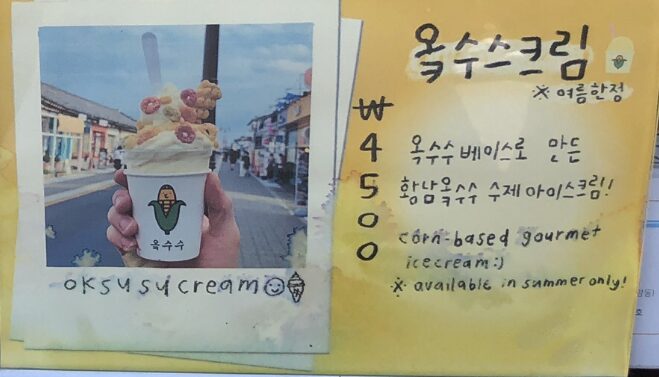 옥수스크림
※ 여름한정
₩4500
옥수수 베이스로 만든
황남옥수수 수제 아이스크림!
corn-based gourmet
icecream:)
※ available in summer only!
옥수수
oksusucream